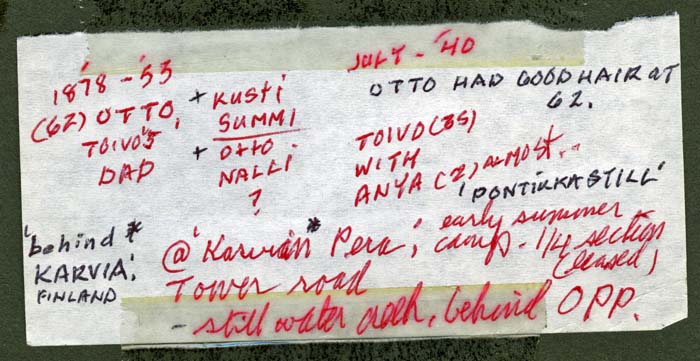 1878 - '53
(62) OTTO,
TOIVO'S
DAD
+ KUSTI
SUMMI
+ OTTO
NALLI
?
JULY - '40
OTTO HAD GOOD HAIR AT
62.
TOIVO (35)
WITH
ANYA (2) ALMOST..
'PONTIKKA STILL'
'behind *
KARVIA'.
FINLAND
@ 'Karvian* Pera', early summer
camp - 1/4 section
(leased)
Tower road
- still water creek, behind OPP.